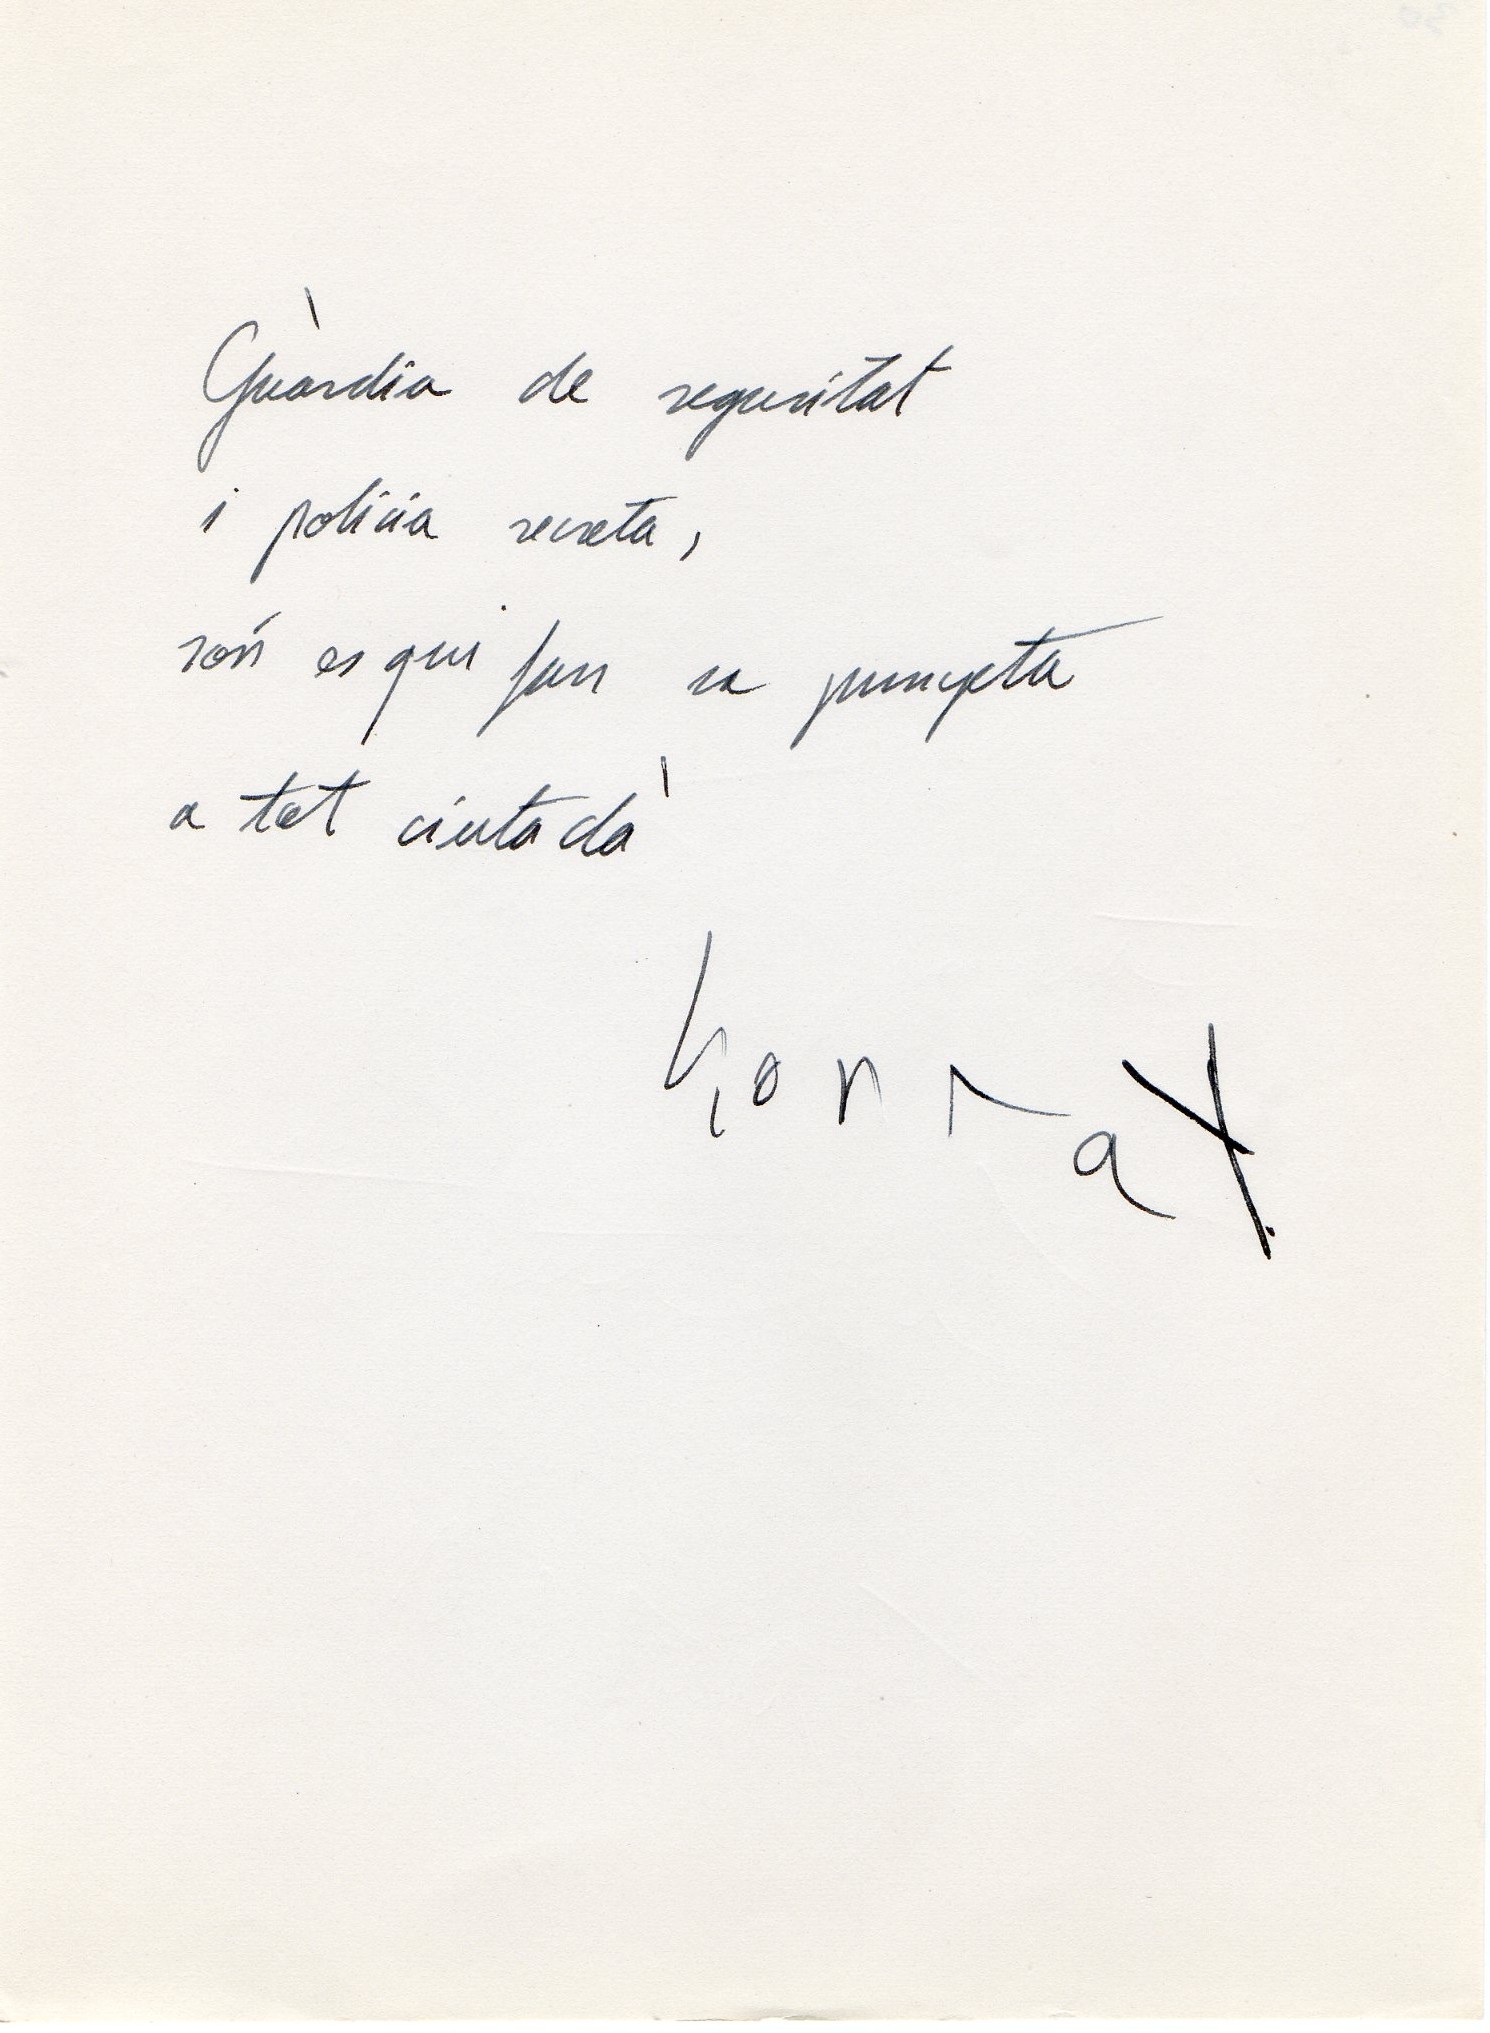 Guàrdia de seguritat
i policia secreta,
són es qui fan sa punyeta
a tot ciutadà